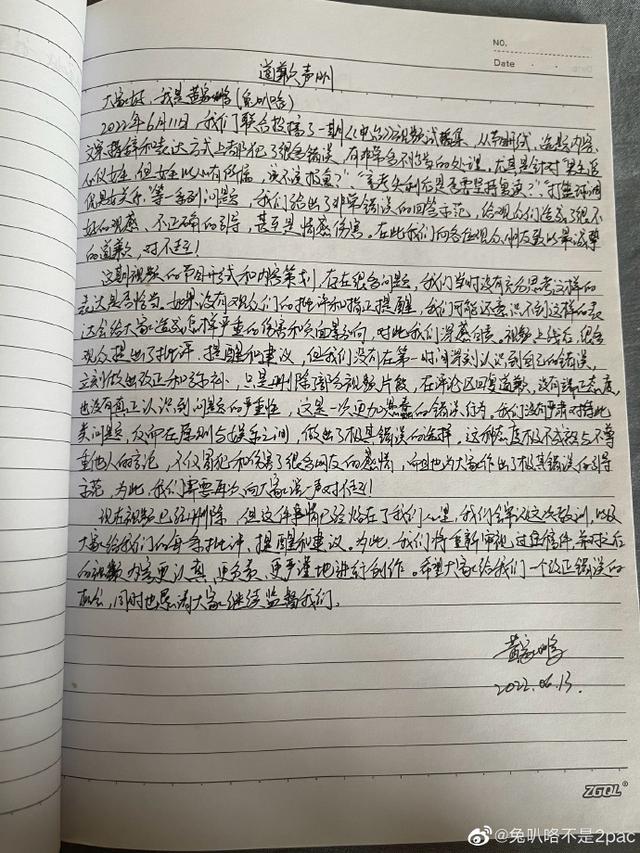 NO.
Date
道歉声明
大家好，我是黄家鹏（兔叭咯）
2022年6月11日，我们联合投稿了一期《电台》视频试播集，从节目形式、选题内容、
文案措辞和表达方式上都犯了很多错误，有非常多不恰当的处理。尤其是针对“男生
女生，但女生以小有
该不该报复？”、“高考失利后是否需要再重复？”、“打
关系”等一系列问题，我们给出了非常错误的回答示范，给观众们造成了很不
好的观感、不正确的引导，甚至是情感伤害。在此我们向各位观众朋友致以最诚挚
的道歉，对不起！
这期视频的节目形式和内容策划，存在很多问题，我们当时没有充分思考这样的
表达是否恰当。如果没有观众们的批评和指正提醒，我们可能还意识不到这样的表
达会给大家造成怎样严重的伤害和负面影响，对此我们深感自责。视频上线后，很多
观众提出了批评、提醒和建议，但我们没有在第一时间深刻认识到自己的错误，
立刻做出改正和弥补，只是删除部分视频片段，在评论区回复道歉，没有端正态度，
也没有真正认识到问题的严重性，这是一次更加愚蠢的错误行为。我们没有严肃对待此
类问题，反而在原则与娱乐之间，做出了极其错误的选择。这种态度极不成熟与不尊
重他人的言论，不仅冒犯和伤害了很多网友的感情，而且也为大家作出了极其错误的引导
示范，为此，我们需要再次向大家说一声对不起！
现在视频已经删除，但这件事情已经烙在了我们心里，我们会牢记这次教训，以及
大家给我们的每条批评、提醒和建议。为此，我们将重新审视过往稿件，并对之后
的视频内容更认真、更负责、更严谨地进行创作。希望大家给我们一个改正错误的
机会，同时也恳请大家继续监督我们。
黄家鹏
2022.06.13.
ZGQL
@兔叭咯不是2pac